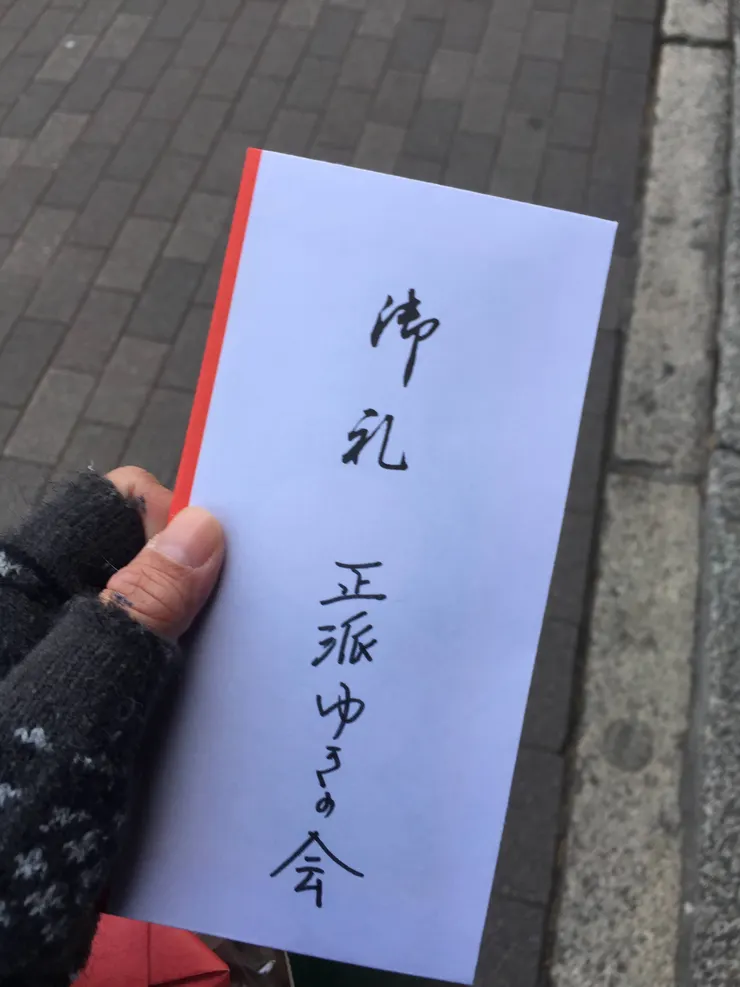 御礼
正派ゆきの会